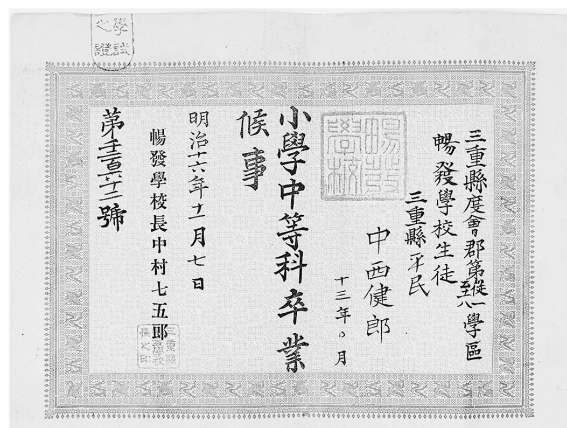 三重縣度會郡第從一至八學區
暢發學校生徒
三重縣平民
中西健郎
十三年〇月
暢發學校
小學中等科卒業
候事
明治十六年十一月七日
暢發學校長中村七五郎
第壬百六十二號